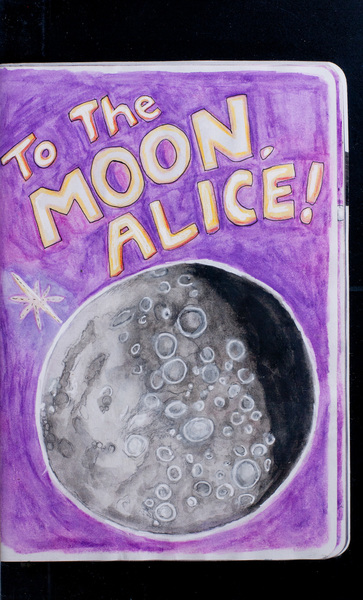 To The
MOON,
ALICE!